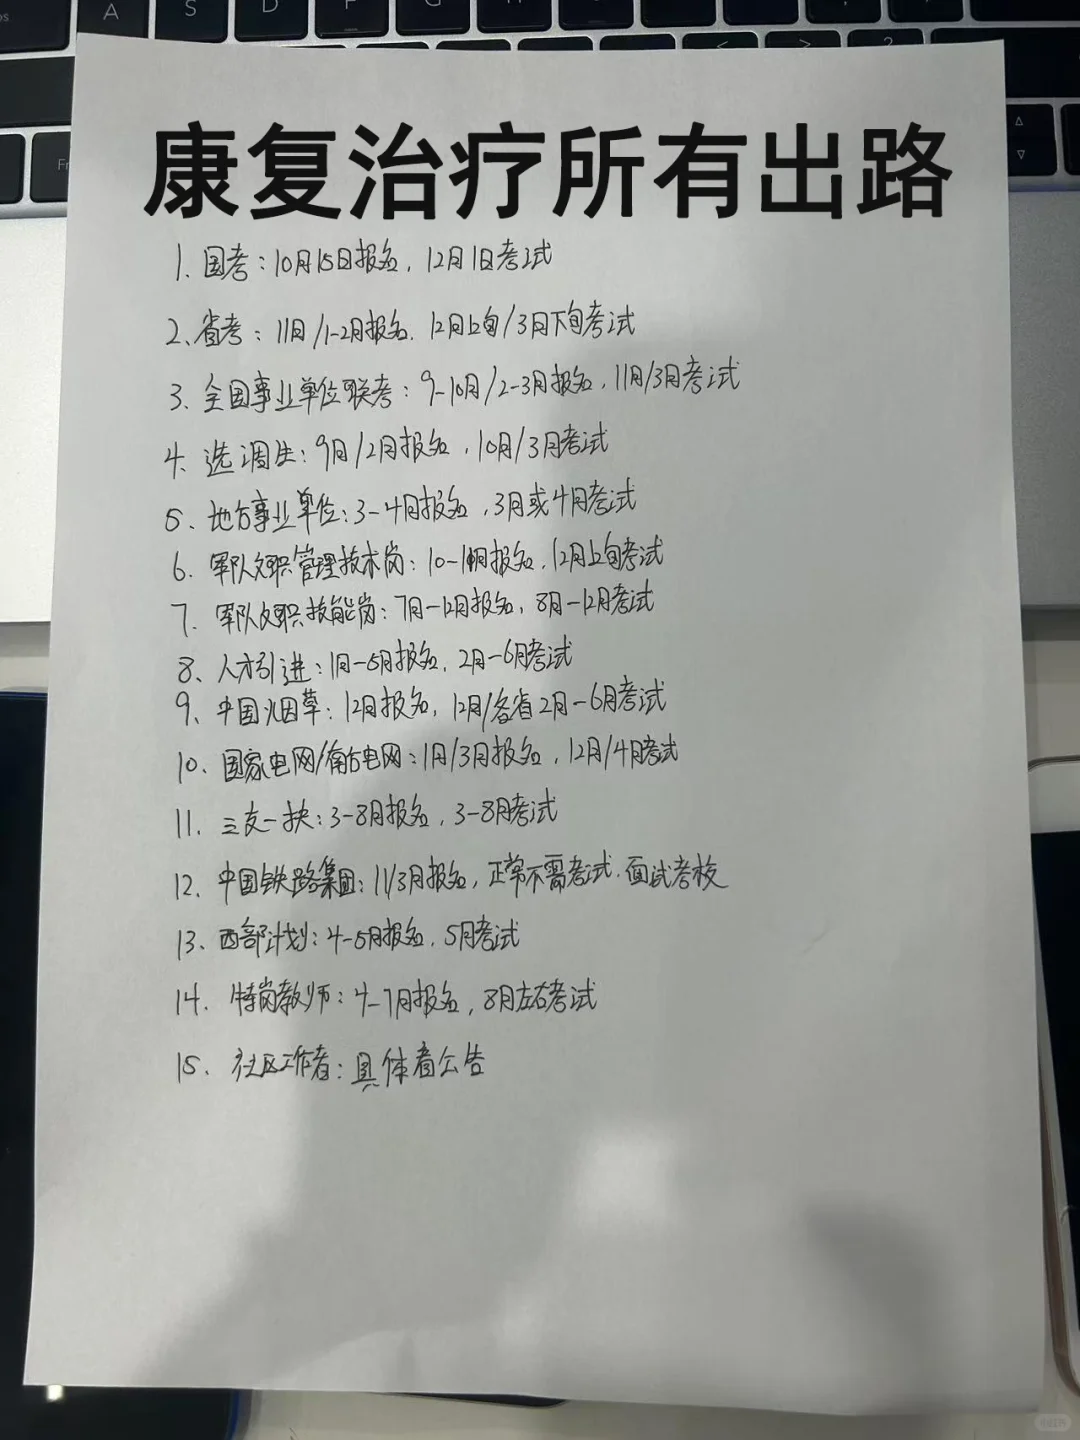 A S D F G H
康复治疗所有出路
1、国考：10月15日报名，12月1日考试
2、省考：11日/1-2月报名．12月上旬/3月下旬考试
3、全国事业单位联考：9-10月/2-3月报名，11月/3月考试
4、选调生：9月/2月报名，10月/3月考试
5、地方事业单位：3-4月报名，3月或4月考试
6、军队文职管理技术岗：10-11月报名，12月上旬考试
7、军队文职技能岗：7月-12月报名，8月-12月考试
8、人才引进：1月-5月报名，2月-6月考试
9、中国烟草：12月报名，12月/各省2月-6月考试
10、国家电网/南方电网：1月/3月报名，12月/4月考试
11、三支一扶：3-8月报名，3-8月考试
12、中国铁路集团：11/3月报名，正常不需考试．面试考核
13、西部计划：4-5月报名，5月考试
14、特岗教师：4-7月报名，8月左右考试
15、社区工作者：具体看公告